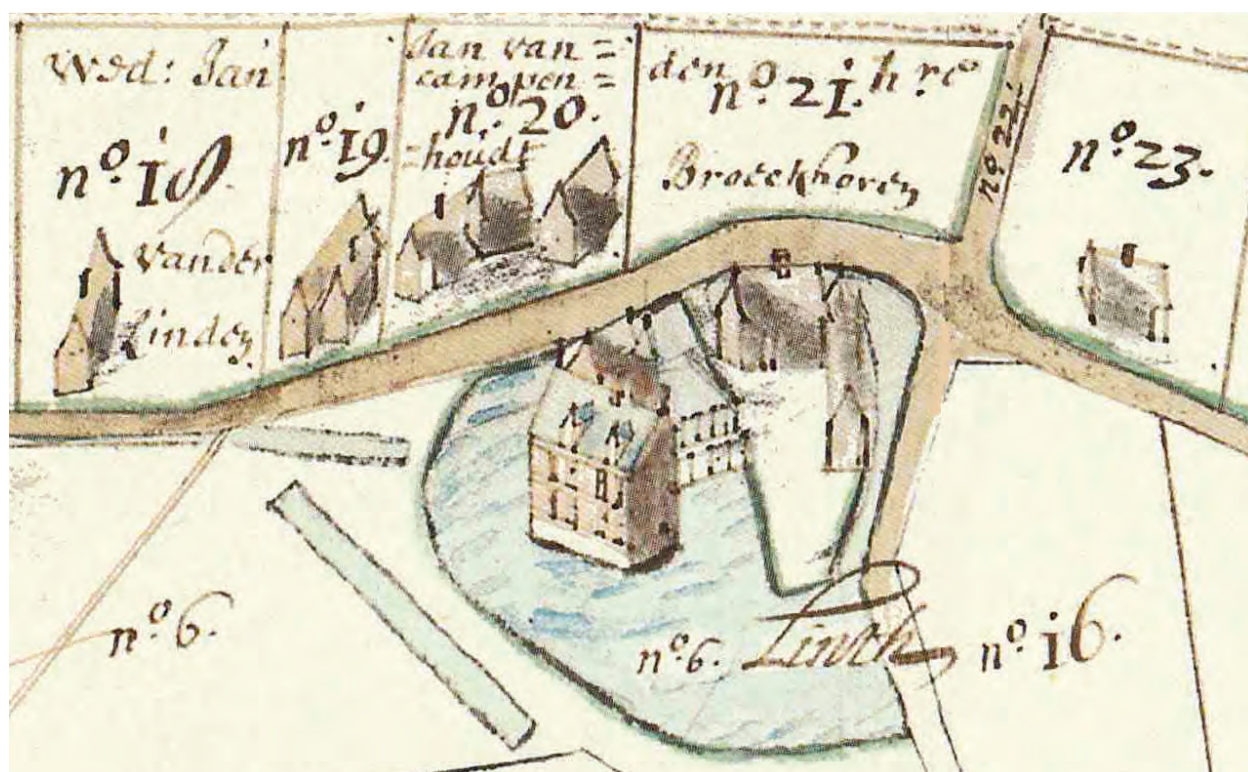 Wed: Jan
nº. 18.
vander
Linden
nº. 19.
Jan van=
campen=
nº. 20.
=houdt
den
nº. 21.
hre
Broeckhoven
nº 22.
nº. 23.
nº. 6.
nº. 6.
Linth
nº. 16.